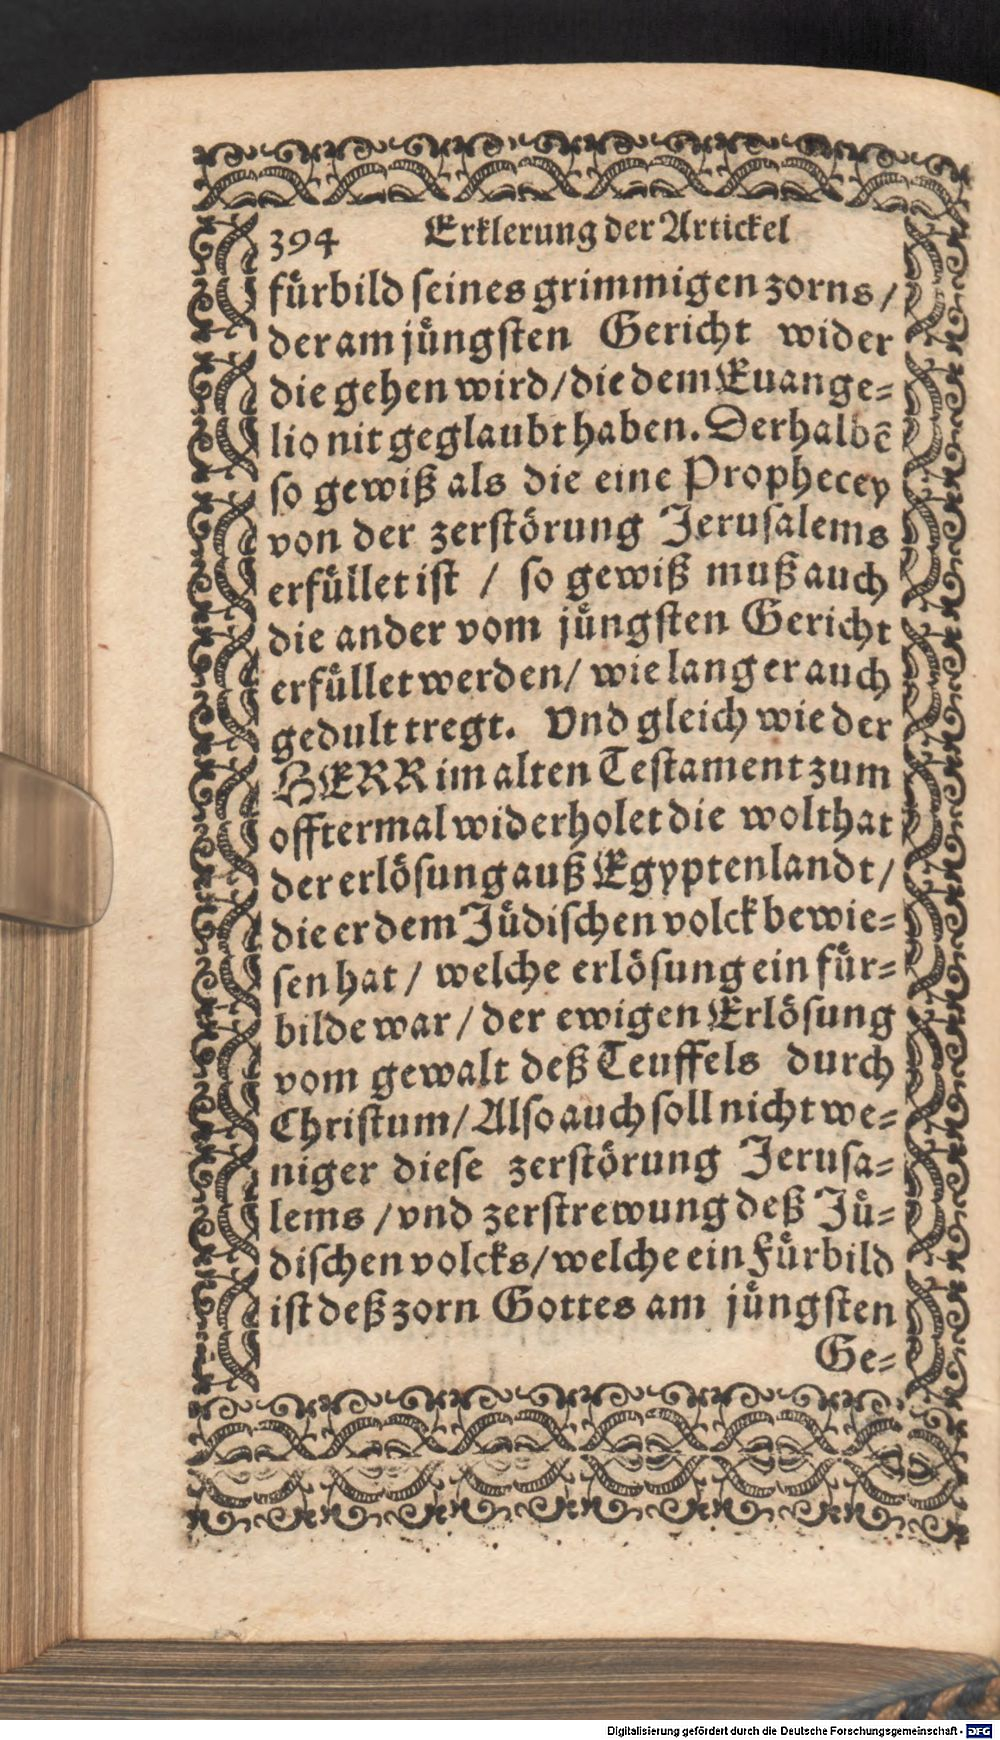 394 Erklerung der Artickel
fuͤrbild ſeines grimmigen zorns/
der am juͤngſten Gericht wider
die gehen wird/die dem Euange⸗
lio nit geglaubt haben. Derhalbē
ſo gewiß als die eine Prophecey
von der zerſtoͤrung Jeruſalems
erfuͤllet iſt / ſo gewiß muß auch
die ander vom juͤngſten Gericht
erfuͤllet werden/ wie lang er auch
gedult tregt. Vnd gleich wie der
HERR im alten Teſtament zum
offtermal widerholet die wolthat
der erloͤſung auß Egyptenlandt/
die er dem Juͤdiſchen volck bewie⸗
ſen hat/ welche erloͤſung ein fuͤr⸗
bilde war/ der ewigen Erloͤſung
vom gewalt deß Teuffels durch
Chriſtum/ Alſo auch ſoll nicht we⸗
niger dieſe zerſtoͤrung Jeruſa⸗
lems /vnd zerſtrewung deß Juͤ⸗
diſchen volcks/welche ein Fuͤrbild
iſt deß zorn Gottes am juͤngſten
Ge⸗
Digitalisierung gefördert durch die Deutsche Forschungsgemeinschaft - DFG